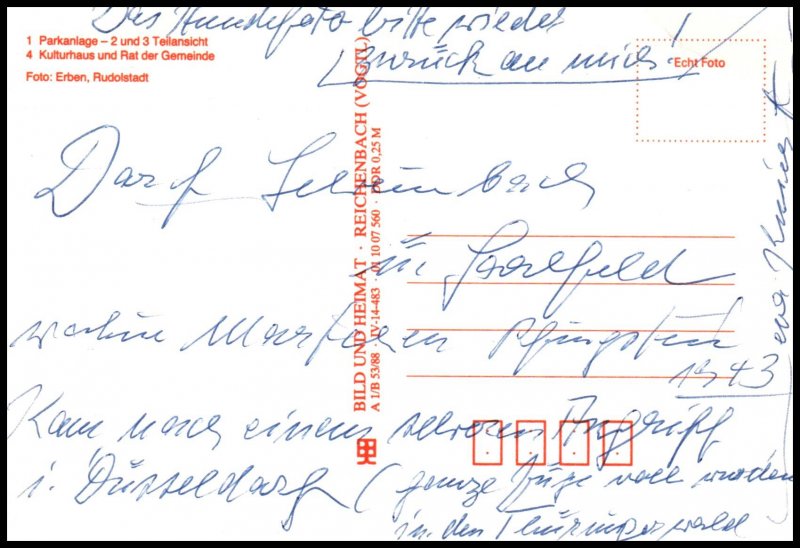 Das Hundefoto bitte wieder
zurück an mich!
1 Parkanlage – 2 und 3 Teilansicht
4 Kulturhaus und Rat der Gemeinde
Foto: Erben, Rudolstadt
Echt Foto
BILD UND HEIMAT · REICHENBACH (VOGTL)
A 1/B 53/88 · IV-14-483 · 01 10 07 560 · DDR 0,25 M
Dorf
in Saalfeld
Pfingsten
1943
Kam nach einem schweren Angriff
i. Düsseldorf (ganze Züge voll wurden
in den Thüringerwald